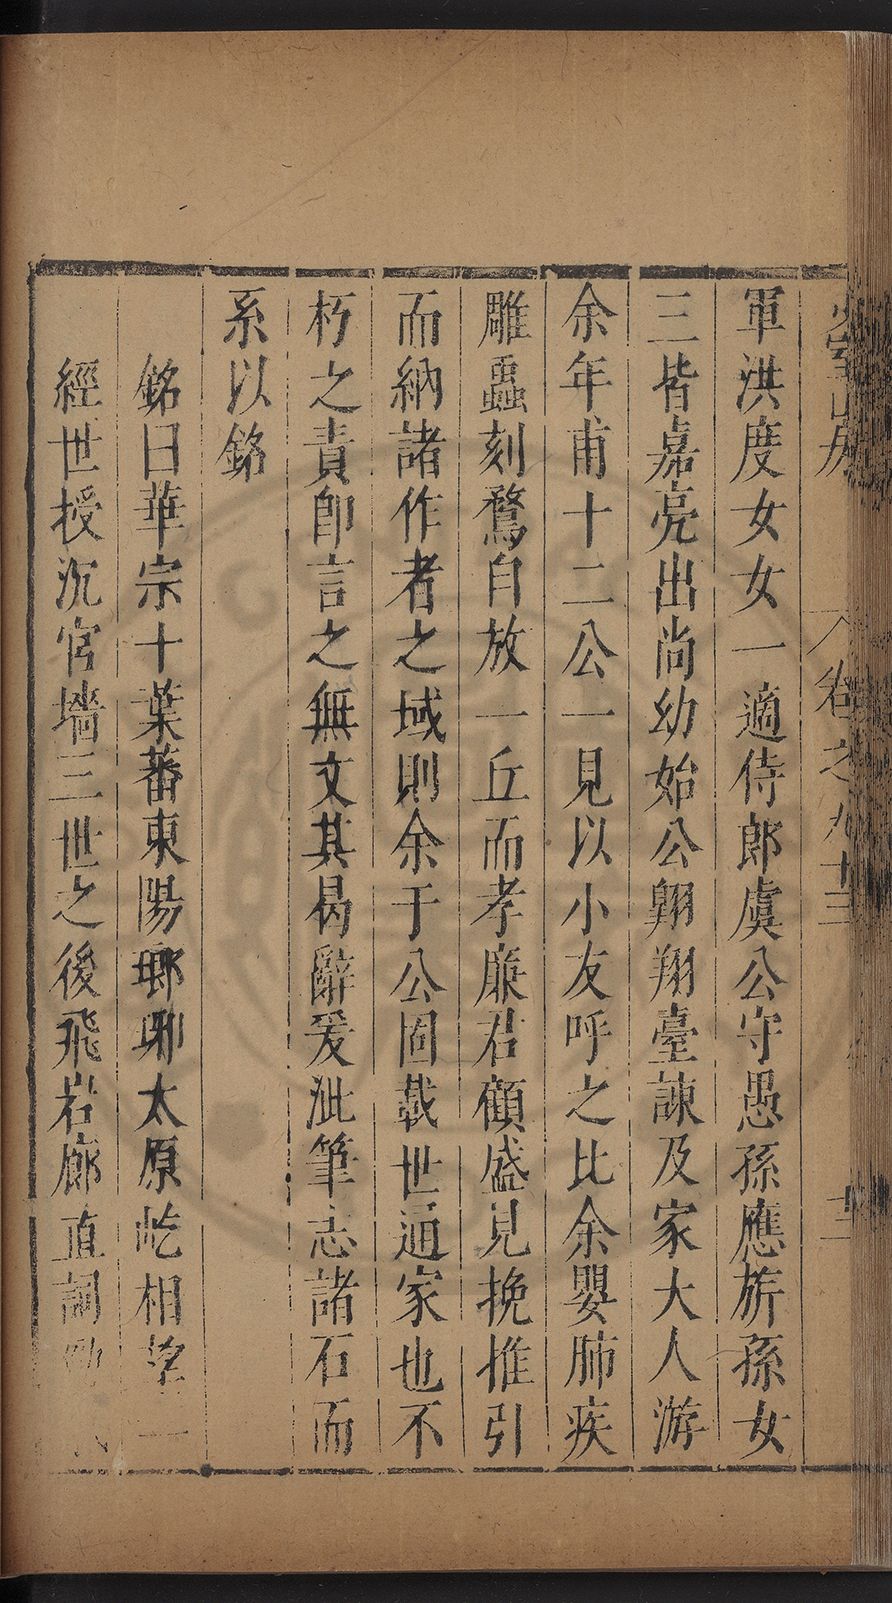 少室山房
卷之九十三
十二
軍洪度女女一適侍郎虞公守愚孫應旂孫女
三皆嘉亮出尚幼始公翺翔臺諫及家大人游
余年甫十二公一見以小友呼之比余嬰肺疾
雕蟲刻鶩自放一丘而孝廉君顧盛見挽推引
而納諸作者之域則余于公固載世通家也不
朽之責即言之無文其曷辭爰泚筆志諸石而
系以銘
銘曰華宗十葉蕃東陽瑯琊太原屹相望一
經世授沉宮墻三世之後飛岩廊直詞